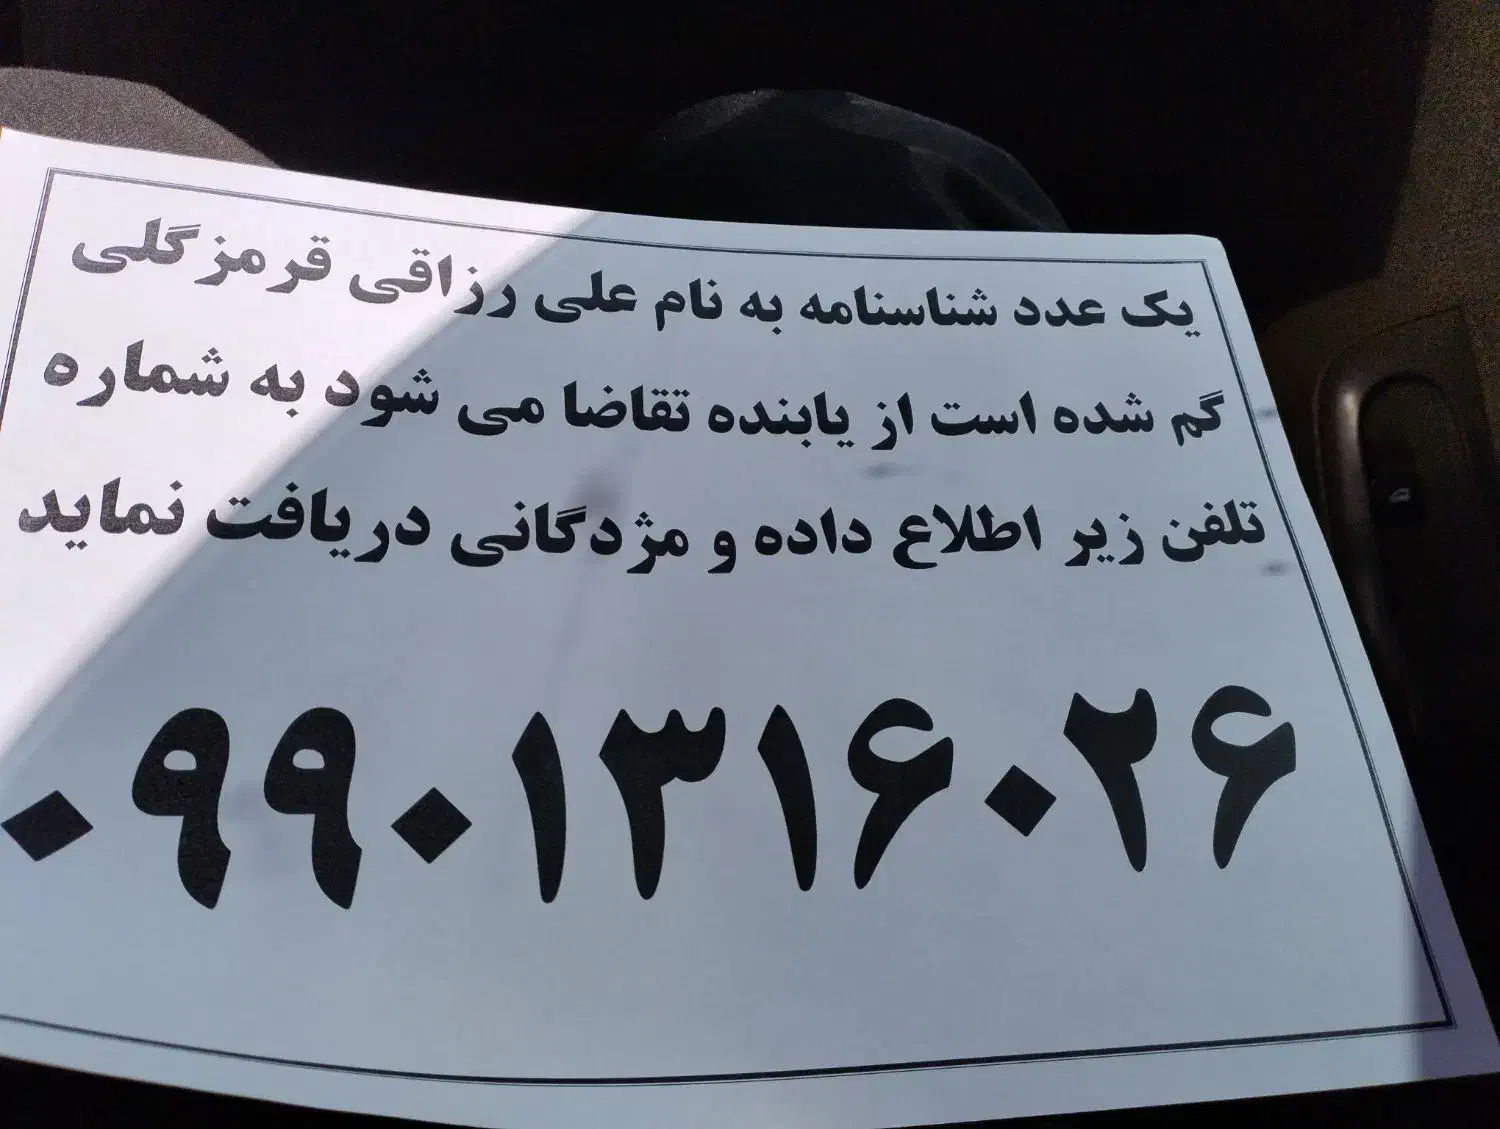 یک عدد شناسنامه به نام علی رزاقی قرمزگلی
گم شده است از یابنده تقاضا می شود به شماره
تلفن زیر اطلاع داده و مژدگانی دریافت نماید
۰۹۹۰۱۳۱۶۰۲۶